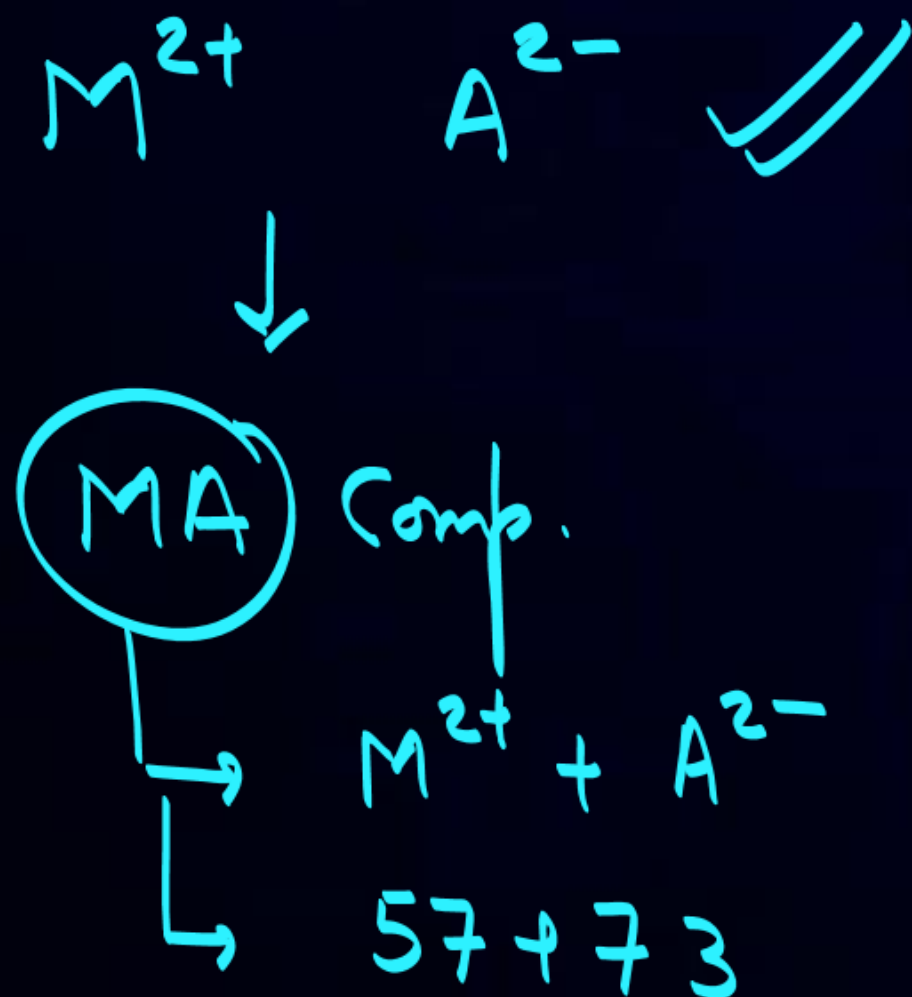 M²⁺ A²⁻
MA Comp.
M²⁺ + A²⁻
57 + 73